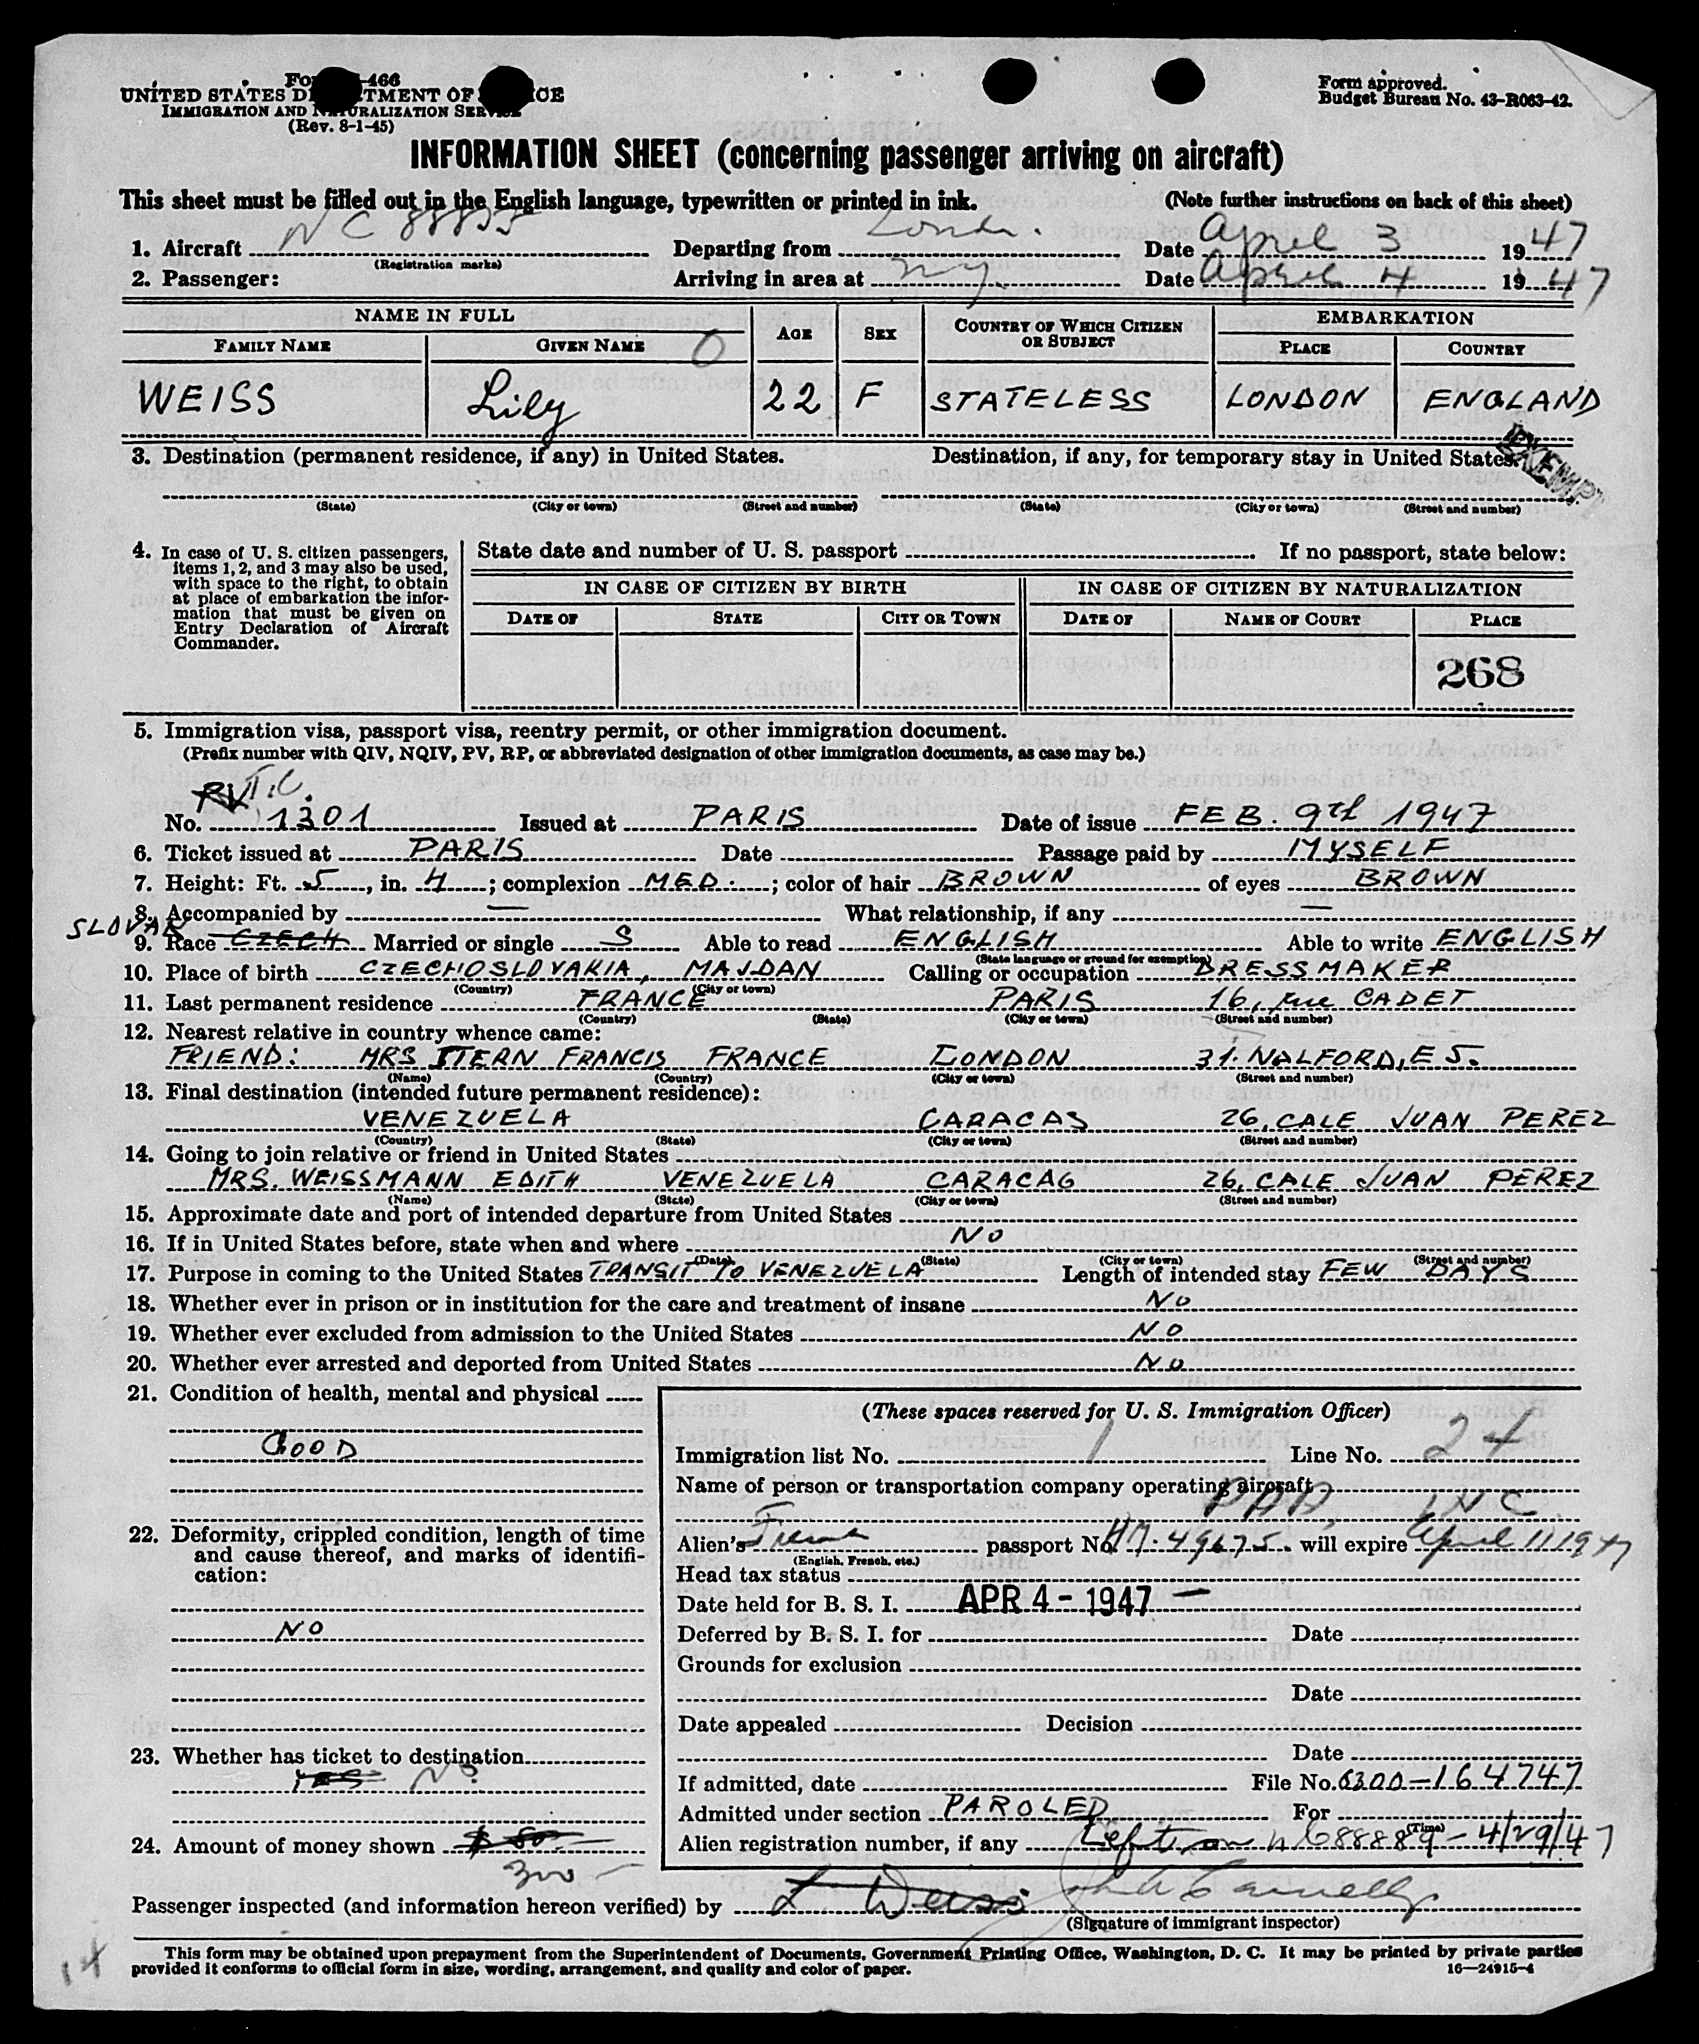 Form -466
UNITED STATES D TMENT OF ICE
IMMIGRATION AND NATURALIZATION SERVICE
(Rev. 8-1-45)
Form approved.
Budget Bureau No. 43-R063-42.
INFORMATION SHEET (concerning passenger arriving on aircraft)
This sheet must be filled out in the English language, typewritten or printed in ink. (Note further instructions on back of this sheet)
1. Aircraft NC 88855 Departing from Londn. Date April 3 1947
(Registration marks)
2. Passenger: Arriving in area at NY. Date April 4 1947
NAME IN FULL AGE SEX COUNTRY OF WHICH CITIZEN OR SUBJECT EMBARKATION
FAMILY NAME GIVEN NAME O PLACE COUNTRY
WEISS Lily 22 F STATELESS LONDON ENGLAND
3. Destination (permanent residence, if any) in United States. Destination, if any, for temporary stay in United States.
EXEMPT
(State) (City or town) (Street and number) (State) (City or town) (Street and number)
4. In case of U. S. citizen passengers, items 1, 2, and 3 may also be used, with space to the right, to obtain at place of embarkation the information that must be given on Entry Declaration of Aircraft Commander.
State date and number of U. S. passport If no passport, state below:
IN CASE OF CITIZEN BY BIRTH IN CASE OF CITIZEN BY NATURALIZATION
DATE OF STATE CITY OR TOWN DATE OF NAME OF COURT PLACE
268
5. Immigration visa, passport visa, reentry permit, or other immigration document.
(Prefix number with QIV, NQIV, PV, RP, or abbreviated designation of other immigration documents, as case may be.)
T.C.
No. 1301 Issued at PARIS Date of issue FEB. 9th 1947
6. Ticket issued at PARIS Date Passage paid by MYSELF
7. Height: Ft. 5, in. 4; complexion MED.; color of hair BROWN of eyes BROWN
8. Accompanied by — What relationship, if any —
SLOVAK
9. Race CZECH Married or single S Able to read ENGLISH Able to write ENGLISH
(State language or ground for exemption)
10. Place of birth CZECHOSLOVAKIA, MAJDAN Calling or occupation DRESSMAKER
(Country) (City or town)
11. Last permanent residence FRANCE PARIS 16, rue CADET
(Country) (State) (City or town) (Street and number)
12. Nearest relative in country whence came:
FRIEND: MRS STERN FRANCIS FRANCE LONDON 31. NALFORD, E5.
(Name) (Country) (City or town) (Street and number)
13. Final destination (intended future permanent residence):
VENEZUELA CARACAS 26, CALE JUAN PEREZ
(Country) (State) (City or town) (Street and number)
14. Going to join relative or friend in United States
MRS. WEISSMANN EDITH VENEZUELA CARACAS 26, CALE JUAN PEREZ
(Name) (State) (City or town) (Street and number)
15. Approximate date and port of intended departure from United States
16. If in United States before, state when and where NO
(Date) (State) (City or town) (Street and number)
17. Purpose in coming to the United States TRANSIT TO VENEZUELA Length of intended stay FEW DAYS
18. Whether ever in prison or in institution for the care and treatment of insane NO
19. Whether ever excluded from admission to the United States NO
20. Whether ever arrested and deported from United States NO
21. Condition of health, mental and physical
GOOD
22. Deformity, crippled condition, length of time and cause thereof, and marks of identification:
NO
23. Whether has ticket to destination
YES No
24. Amount of money shown $ 50
300 —
(These spaces reserved for U. S. Immigration Officer)
Immigration list No. 1 Line No. 24
Name of person or transportation company operating aircraft
PAA, INC
Alien's passport No. 49675. will expire April 11 1947
(English, French, etc.)
Head tax status
Date held for B. S. I. APR 4 - 1947 —
Deferred by B. S. I. for Date
Grounds for exclusion
Date
Date appealed Decision
Date
If admitted, date File No. 6300-164747
Admitted under section PAROLED For
(Time)
Alien registration number, if any Left on NC88889 - 4/29/47
Passenger inspected (and information hereon verified) by L Weiss
(Signature of immigrant inspector)
This form may be obtained upon prepayment from the Superintendent of Documents, Government Printing Office, Washington, D. C. It may be printed by private parties
provided it conforms to official form in size, wording, arrangement, and quality and color of paper. 16—24915-4
14